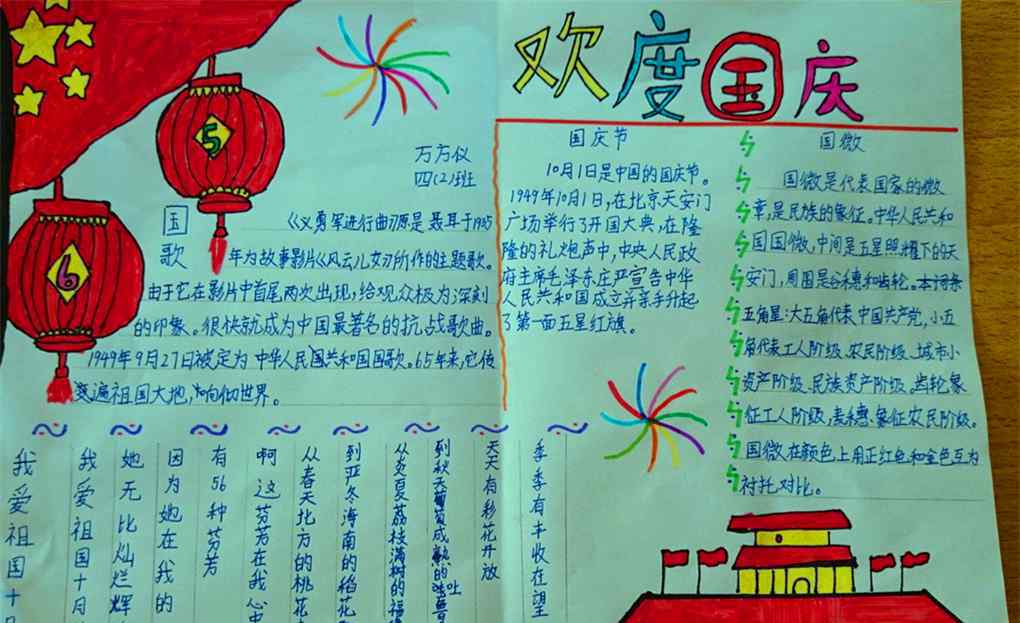 欢度国庆
5
6
万方仪
四(2)班
国歌
《义勇军进行曲》原是聂耳于1935
年为故事影片《风云儿女》所作的主题歌。
由于它在影片中首尾两次出现,给观众极为深刻
的印象。很快就成为中国最著名的抗战歌曲。
1949年9月27日被定为中华人民共和国国歌。65年来,它传
遍祖国大地,响彻世界。
国庆节
10月1日是中国的国庆节。
1949年10月1日,在北京天安门
广场举行了开国大典,在隆
隆的礼炮声中,中央人民政
府主席毛泽东庄严宣告中华
人民共和国成立并亲手升起
了第一面五星红旗。
国微
国微是代表国家的微
章,是民族的象征。中华人民共和
国国微,中间是五星照耀下的天
安门,周围是谷穗和齿轮。本词条
五角星:大五角代表中国共产党,小五
角代表工人阶级、农民阶级、城市小
资产阶级、民族资产阶级。齿轮象
征工人阶级,麦穗、象征农民阶级。
国微在颜色上用正红色和金色互为
衬托对比。
我爱祖国十
我爱祖国十月
她无比灿烂辉
因为她在我的
有56种芬芳
啊这芬芳在我心中
从春天北方的桃花
到严冬海南的稻花
从炎夏荔枝满树的福
到秋天葡萄成熟的吐鲁
天天有彩花开放
季季有丰收在望